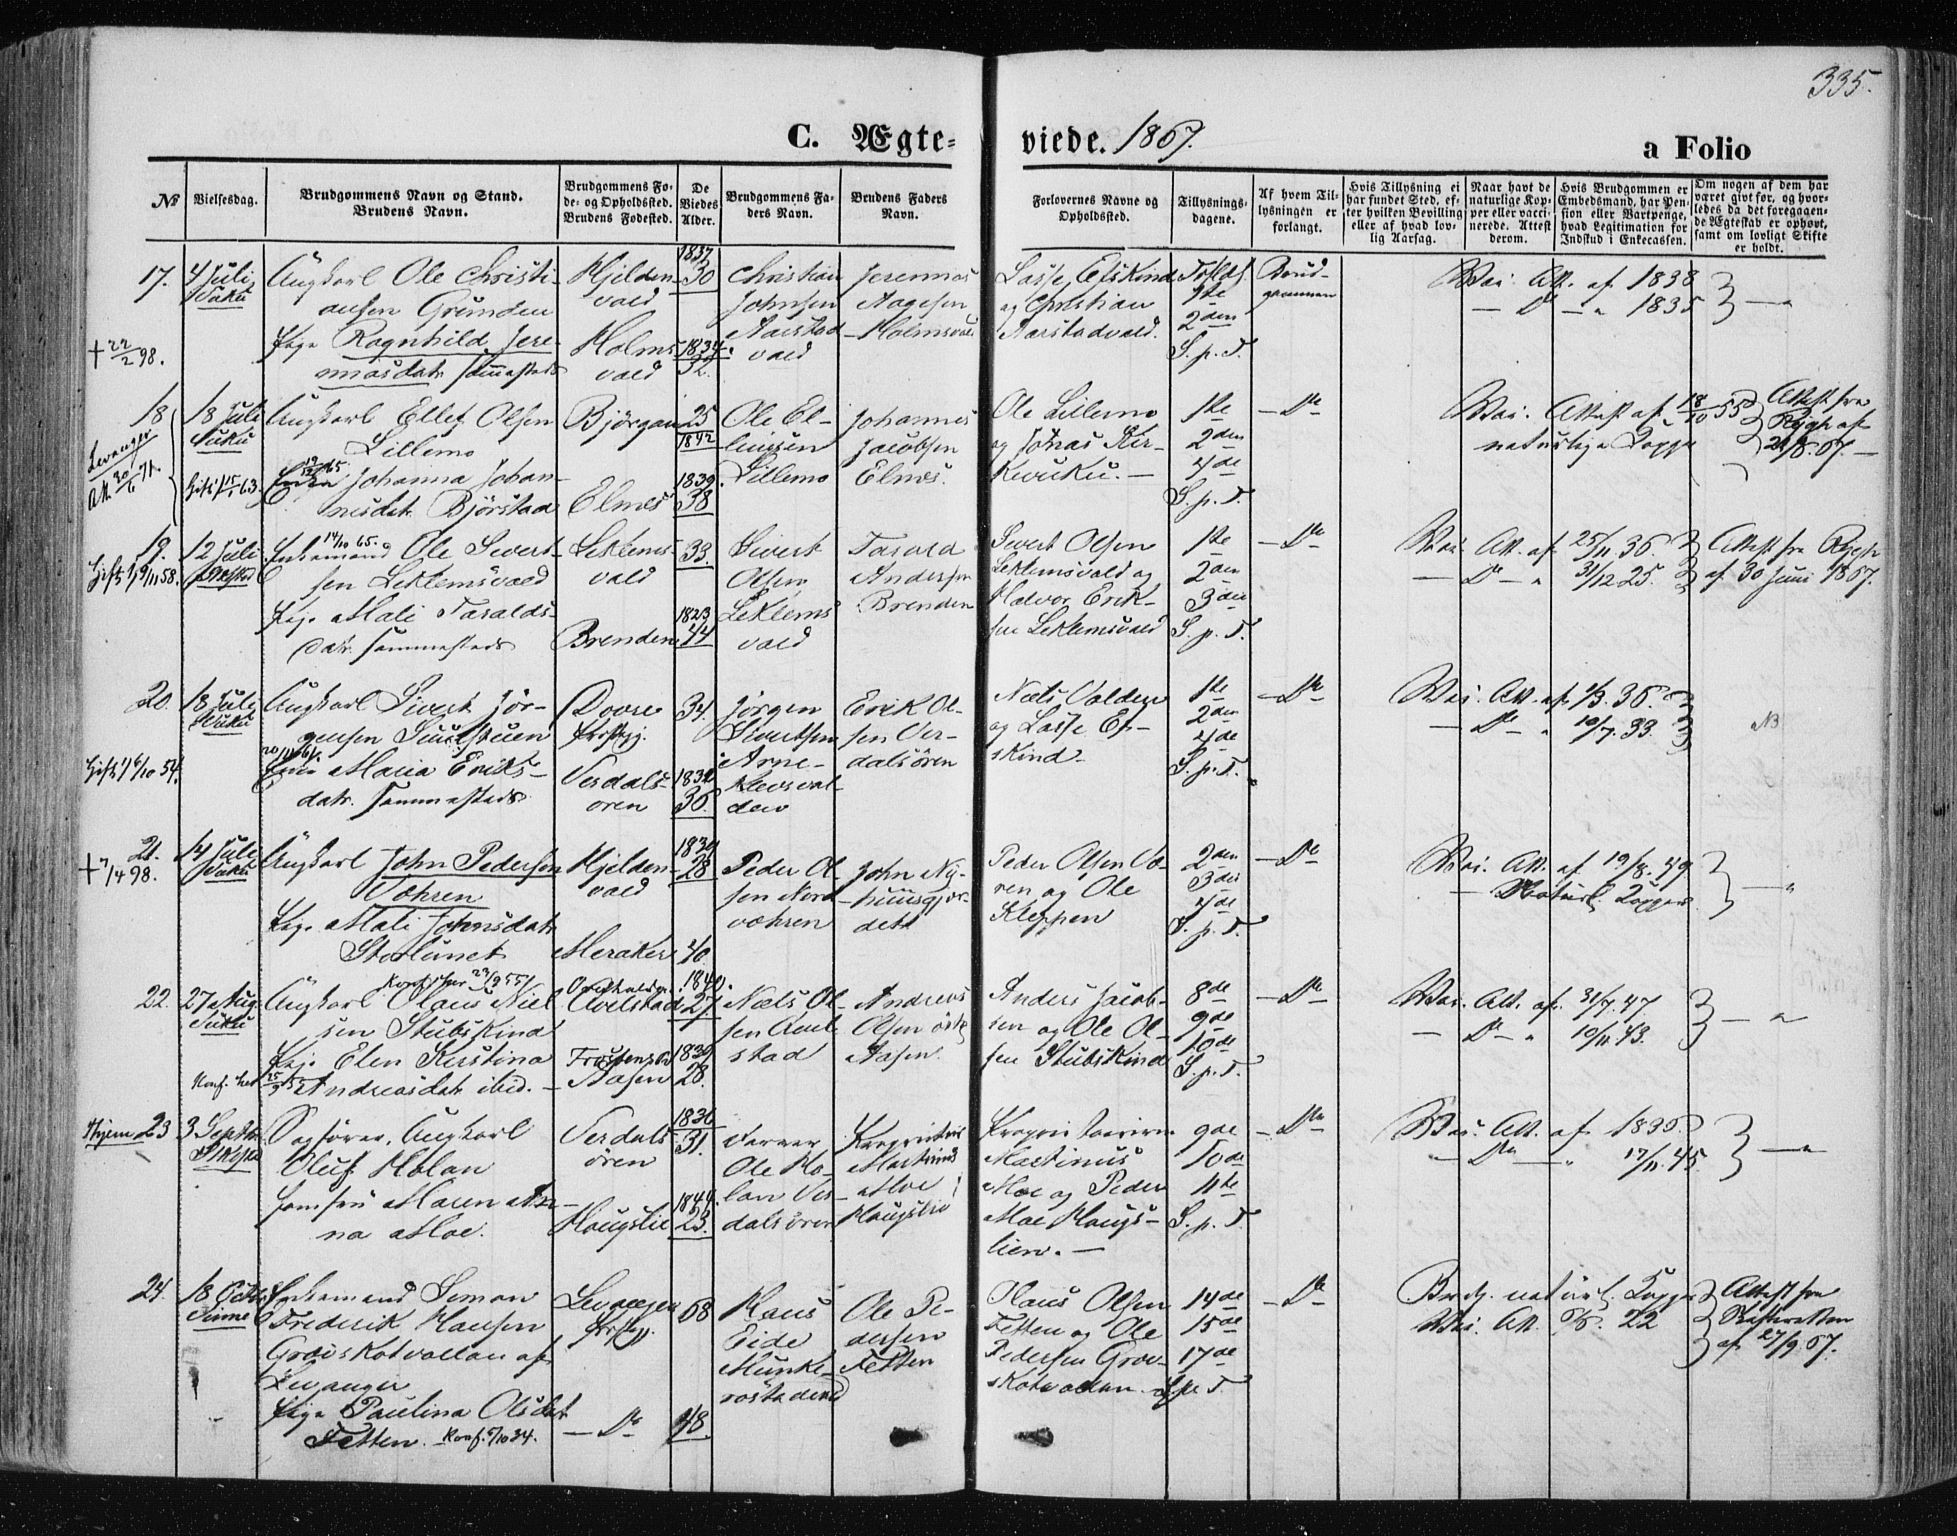 335.
C. Ægte-
viede. 1867.
a Folio
No
Vielsesdag.
Brudgommens Navn og Stand.
Brudens Navn.
Brudgommens Fo-
de- og Opholdssted.
Brudens Fødested.
De
Viedes
Alder.
Brudgommens Fa-
ders Navn.
Brudens Faders
Navn.
Forlovernes Navne og
Opholdssted.
Tillysnings-
dagene.
Af hvem Til-
lysningen er
forlangt.
Hvis Tillysning ei
har fundet Sted, ef-
ter hvilken Bevilling
eller af hvad lov-
lig Aarsag.
Naar havt de
naturlige Kop-
per eller vacci-
nerede. Attest
derom.
Hvis Brudgommen er
Embedsmand, har Pen-
sion eller Vartpenge,
hvad Legitimation for
Indskud i Enkecassen.
Om nogen af dem har
været givt før, og hvor-
ledes da det foregaaen-
de Ægteskab er ophørt,
samt om lovligt Skifte
er holdt.
17.
4 Juli
Vuku
† 22/2 98.
Ungkarl Ole Christi-
ansen Grunden
Pige Ragnhild Jere-
miasdatr sammesteds
Hjelden-
vald
Holms
vald
1837
30
1834.
32.
Christian
Johnsen
Aarstad
vald
Jeremias
Aagesen
Holmsvald
Lasse Efskind
og Christian
Aarstadvald.
1ste
2den
S. p. T.
Brud-
gommen
Vac. Att. af 1838
— Do — " 1835
18
Levanger
Att. 30/6 71.
18 Juli
Vuku
Gift 1 15/1 63.
Ungkarl Ellef Olsen
Lillemo
Johanna Johan-
nesdatr Björstad
Björgan
Elnes
25
1842
1839.
38
Ole El-
lingsen
Lillemo
Johannes
Jacobsen
Elnes.
Ole Lillemo
og Jonas Kir-
kevuku. —
1ste
2den
4de
S. p. T.
— Do —
Vac. Attest af 18/10 55
naturlige Kopper
Attest fra
Rygh af
21/8. 67. —
19.
Gift 1 19/11 58.
12 Juli
Enkemand Ole Sivert-
14/10 65.
sen Leklemsvald
Pige Mali Taralds-
datr. sammesteds
Leklems-
vald
Brenden
33.
1823
44
Sivert
Olsen
Leklems
vald
Tarald
Andersen
Brenden
Sivert Olsen
Leklemsvald og
Halvor Erik-
sen Leklemsvald
1ste
2den
3die
S. p. T.
— Do —
Vac. Att. af 25/11. 36.
— Do — " 31/12 25.
Attest fra Rygh
af 30 Juni 1867.
20.
18 Juli
Vuku
Gift 1 6/10 54.
Ungkarl Sivert Jör-
gensen Sundstuen
Maria Eriks-
datr. sammesteds
Dovre
Præstegj.
Verdals-
ören
34.
36.
Jörgen
Sivertsen
Arne-
Klevsval-
den
Erik Ol-
sen Ver-
dalsören
Niels Valden
og Lasse Ef-
skind.
1ste
2den
4de
S. p. T.
— Do —
Vac. Att. af 1/3. 36.
— Do — " 10/7. 33.
NB
21.
† 7/4 98.
14 Juli
Vuku
Ungkarl John Pedersen
Vohren
Pige Mali Johnsdatr
Hjelden-
vald
Meraker
1839
28
40.
Peder Ol-
sen Nord
vohren
John Ny-
huusgjor-
dett
Peder Olsen Vo-
ren og Ole
Kleppen
2den
3die
4de
S. p. T.
— Do —
Vac. Att. af 19/8. 49
— Naturl. Kopper.
22.
27 Aug.
Vuku
Ungkarl Olaus Niel
sen Stubskind
Pige Elen Kirstina
Andreasdatr ibid. —
Konf. her 25/9 53
Overhalden
Avelstad
Frosten
Aasen
1840.
27.
1839
28.
Niels Ol-
sen Avel
stad
Andreas
Olsen
Aasen.
Anders Jacob-
sen og Ole Ol-
sen Stubskind
8de
9de
10de
S. p. T.
— Do —
Vac. Att. af 31/7. 47
— Do — " 19/11. 43.
Hjem 23
3 Septbr
Sagförer, Ungkarl
Oluf Holan
Jomfru Maren An-
na Moe.
Verdals
ören
Haugslie
1836
31.
1844.
23.
Farver
Ole Ho-
lan Ver-
dalsören
Martinus
Moe
Haugslie
Martinus
Moe og Peder
Moe Haugs-
lien. —
9de
10de
11te
S. p. T.
— Do —
Vac. Att. af 1835.
— Do — " 17/11. 45.
24.
18 Octbr
Vinne
Enkemand Simon
Frederik Hansen
Grovskotvallan af
Levanger
Pige Paulina Olsdat
Fetten. Konf. 5/10 34.
Levanger
Præstegj.
— Do —
68
48.
Hans
Eide
Munke-
Ole Pe-
dersen
Fetten
Olaus Olsen
Fetten og Ole
Pedersen Grov-
skotvallan.
14de
15de
17de
S. p. T.
— Do —
Brdg. naturl. Kopper
Vac. Att. 22
Attest fra
Skifteretten
af 27/9 67.